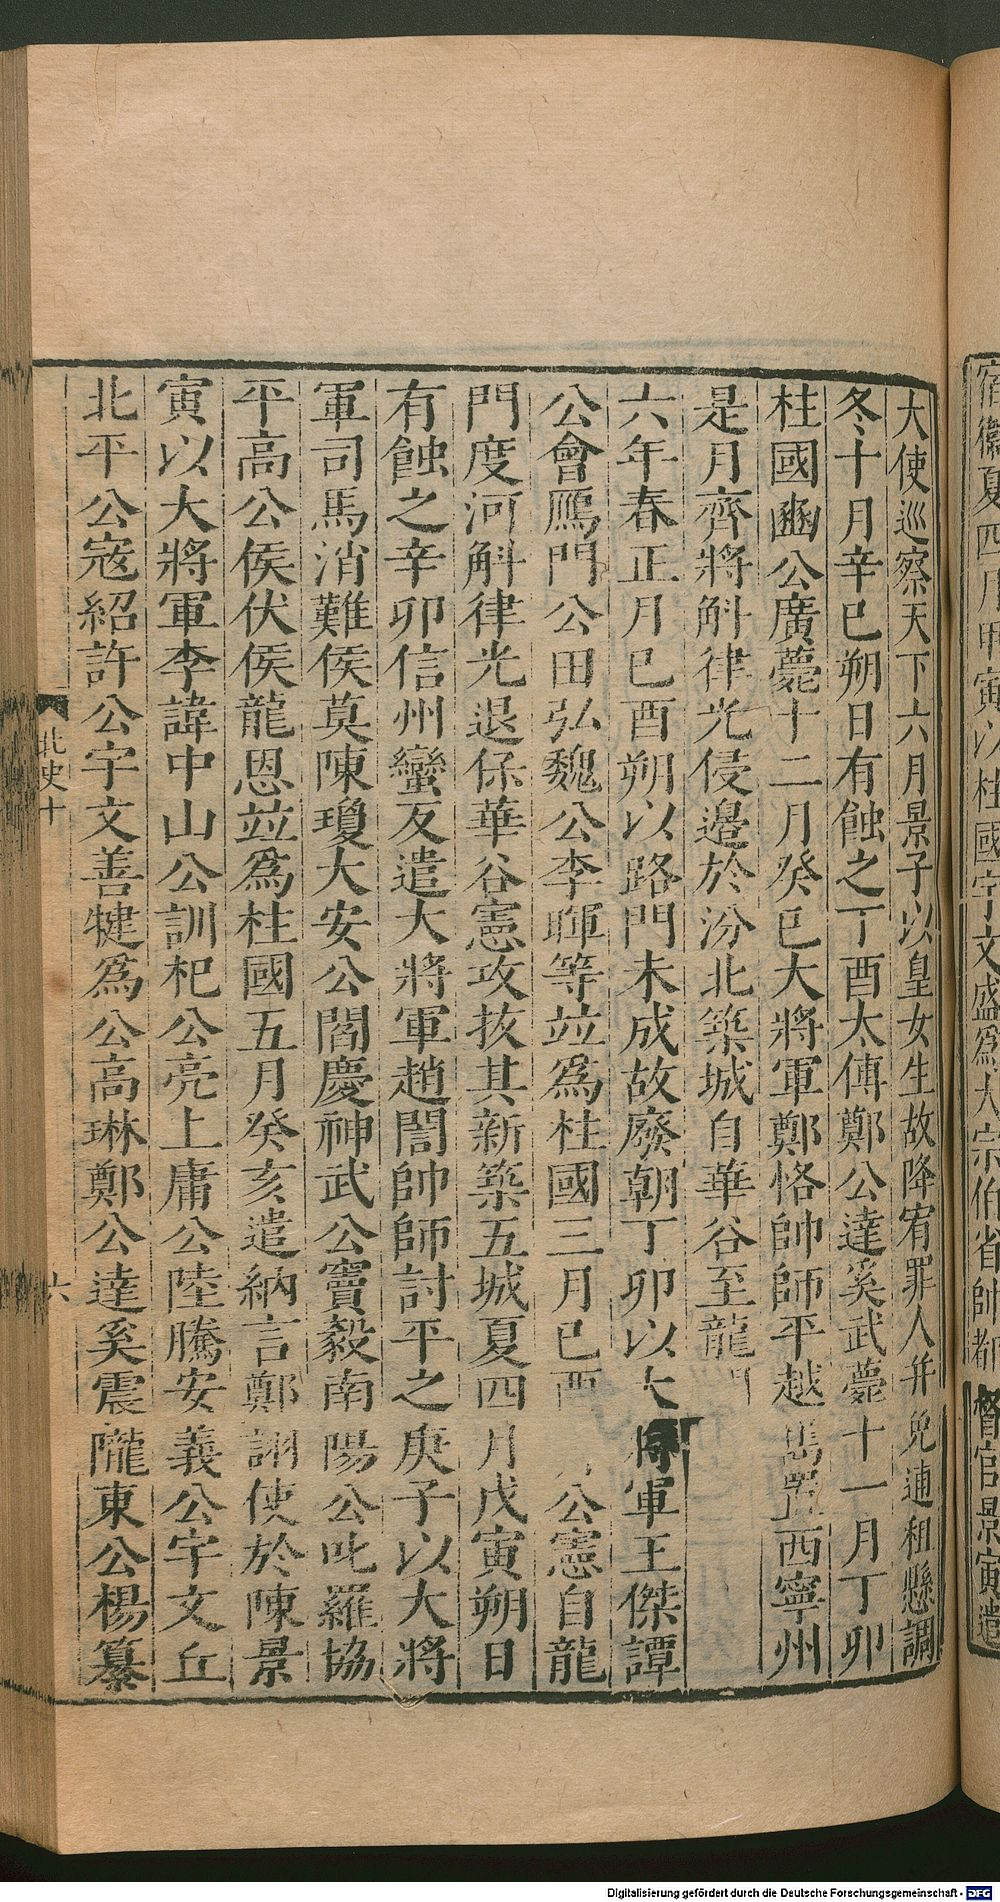 宿衞夏四月甲寅以柱國宇文盛爲大宗伯省帥都督官景寅遣
大使巡察天下六月景子以皇女生故降宥罪人并免逋租懸調
冬十月辛巳朔日有蝕之丁酉太傅鄭公達奚武薨十一月丁卯
柱國豳公廣薨十二月癸巳大將軍鄭恪帥師平越嶲置西寧州
是月齊將斛律光侵邊於汾北築城自華谷至龍門
六年春正月巳酉朔以路門未成故廢朝丁卯以大將軍王傑譚
公會鴈門公田弘魏公李暉等竝爲柱國三月巳酉 公憲自龍
門度河斛律光退保華谷憲攻拔其新築五城夏四月戊寅朔日
有蝕之辛卯信州蠻反遣大將軍趙誾帥師討平之庚子以大將
軍司馬消難侯莫陳瓊大安公閻慶神武公竇毅南陽公叱羅協
平高公侯伏侯龍恩竝爲柱國五月癸亥遣納言鄭詡使於陳景
寅以大將軍李諱中山公訓杞公亮上庸公陸騰安義公宇文丘
北平公寇紹許公宇文善犍爲公高琳鄭公達奚震隴東公楊纂
北史十
六
Digitalisierung gefördert durch die Deutsche Forschungsgemeinschaft - DFG